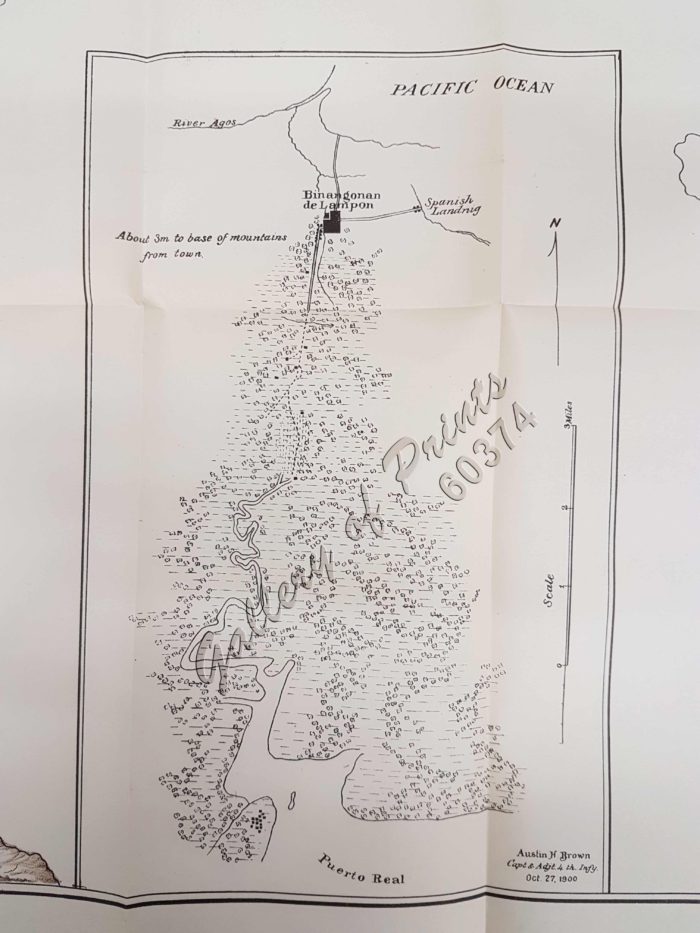 PACIFIC OCEAN
River Agos
Binangonan
de Lampon
Spanish
Landnig
About 3m to base of mountains
from town.
N
3 Miles
2
1
0
Scale
Gallery of Prints
60374
Puerto Real
Austin H Brown
Capt & Adjt. 4 th. Infy.
Oct. 27, 1900